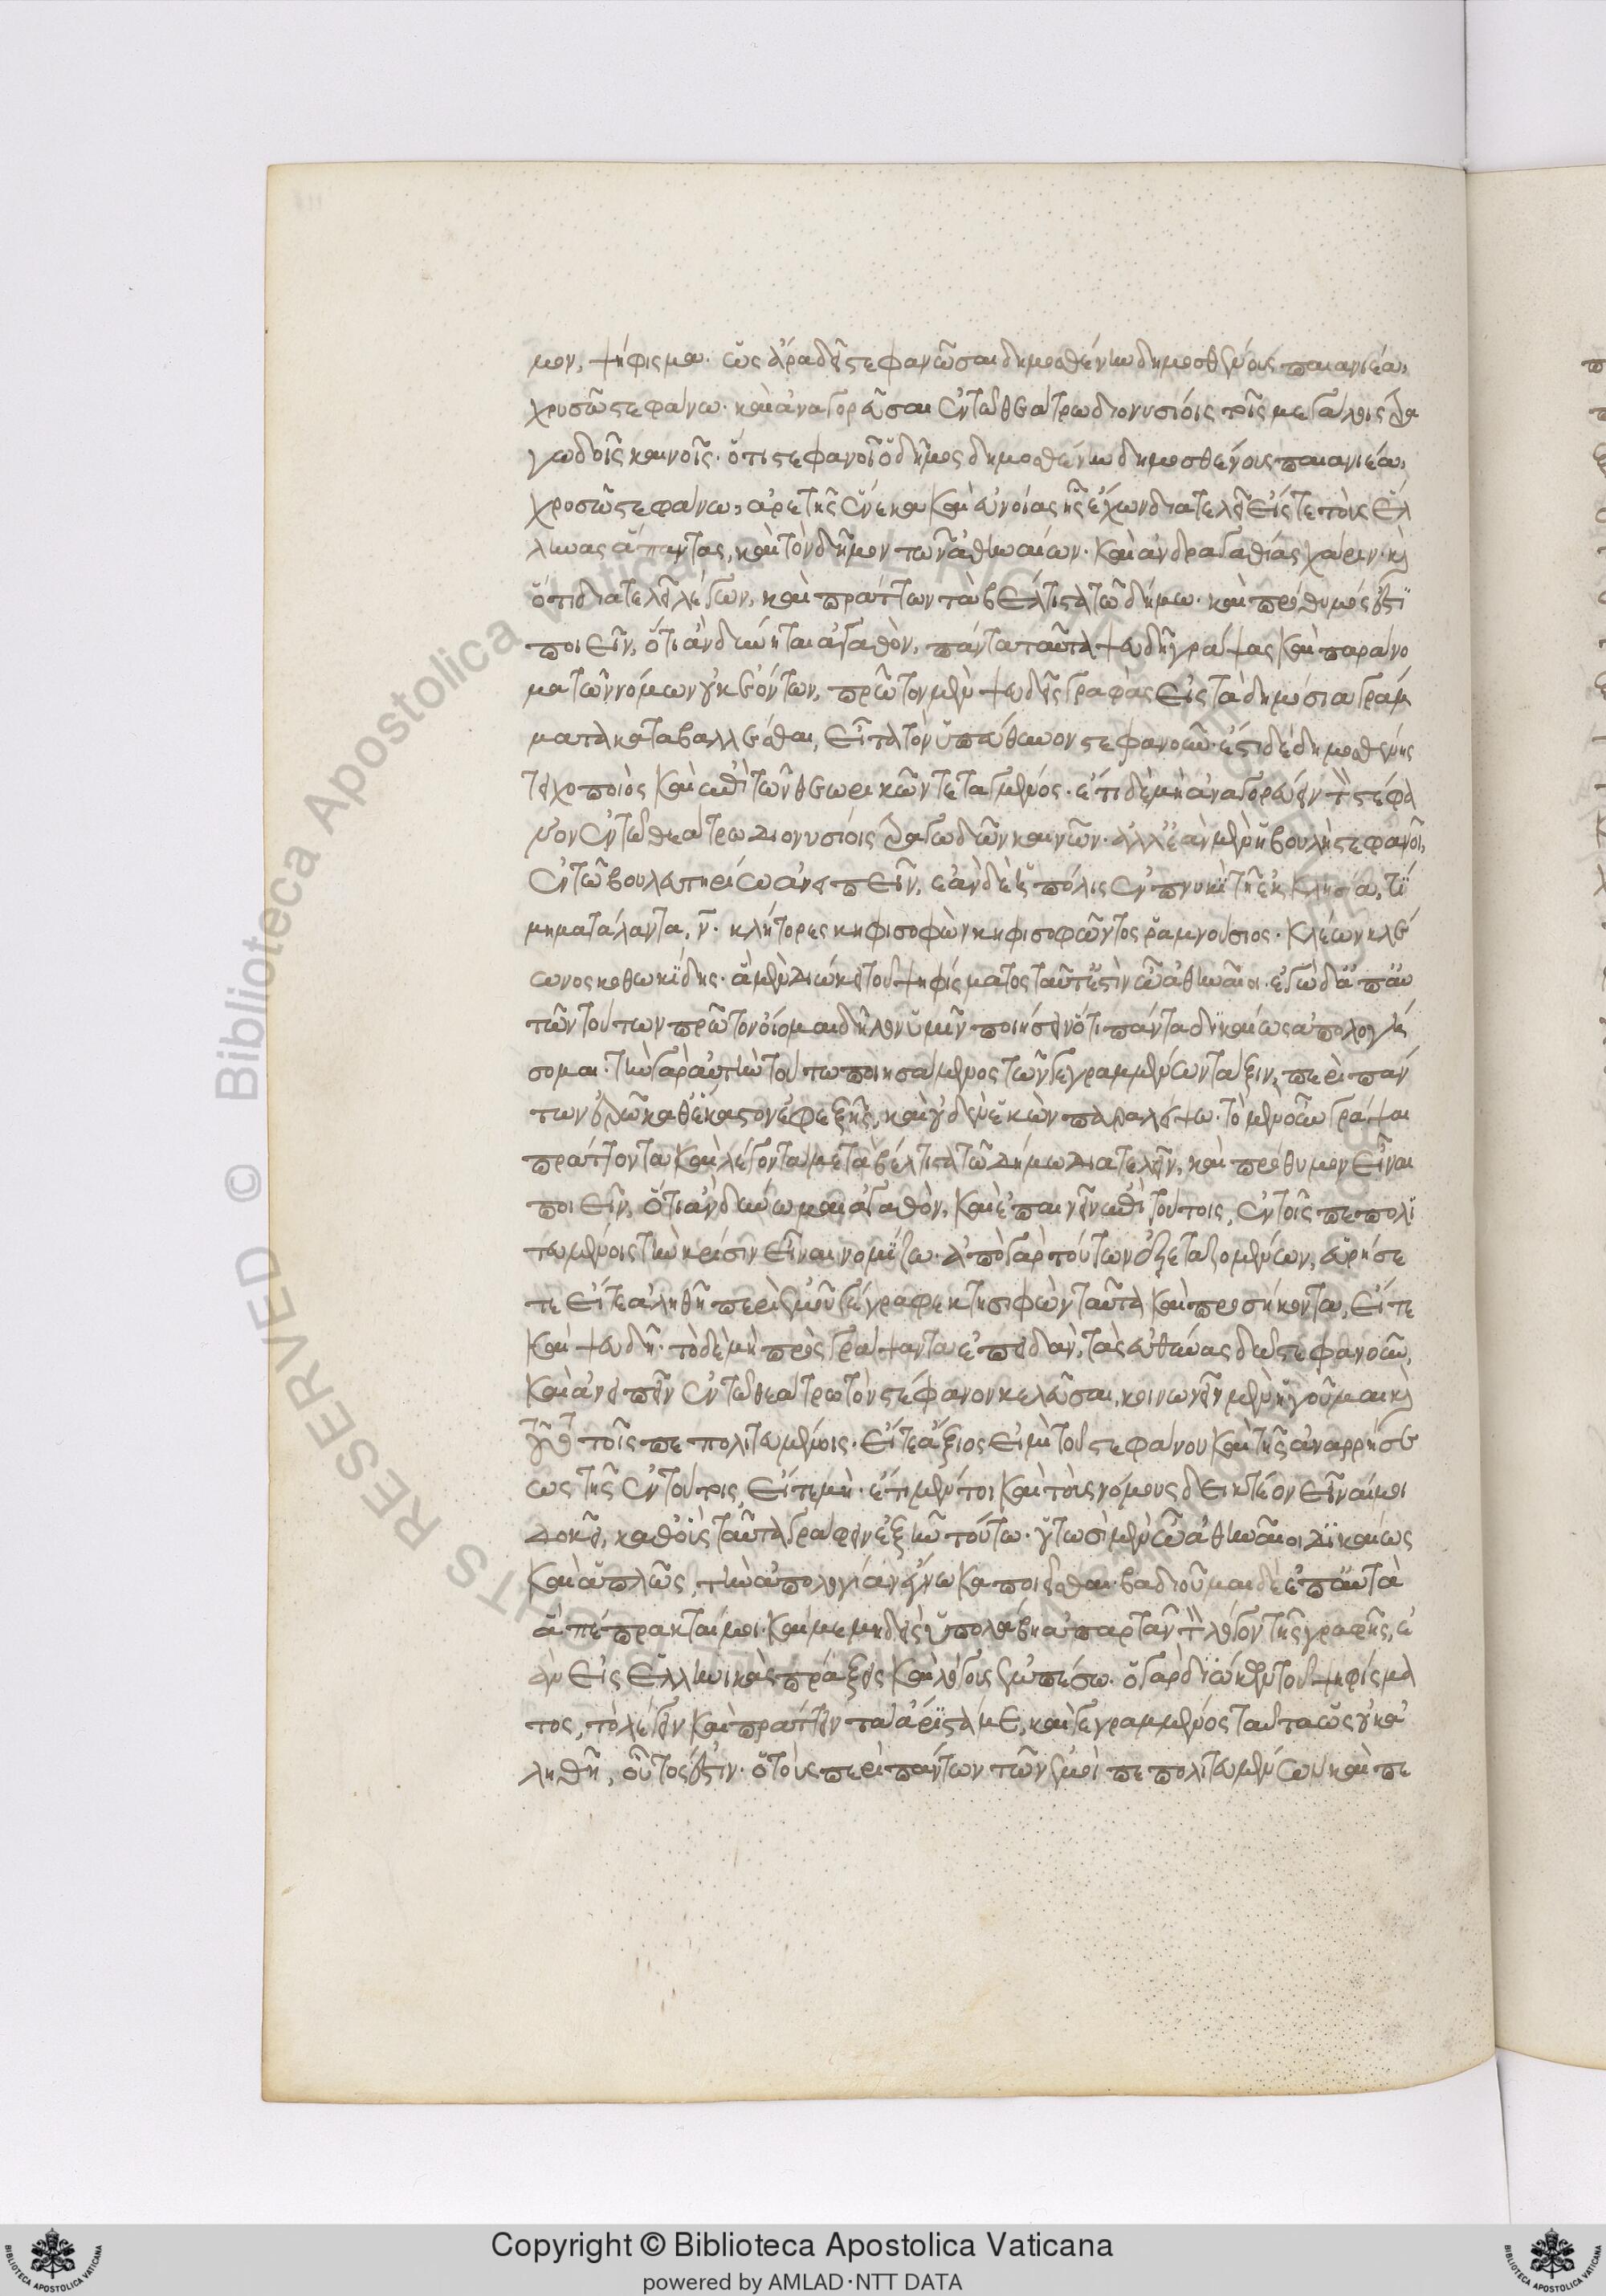 μον, ψήφισμα· ὡς ἄρα δεῖ στεφανῶσαι δημοσθένην δημοσθένους παιανιέα,
χρυσῶ στεφάνω· καὶ ἀναγορεῦσαι ἐν τῶ θεάτρω διονυσίοις τοῖς μεγάλοις τρα
γωδοῖς καινοῖς· ὅτι στεφανοῖ ὁ δῆμος δημοσθένην δημοσθένους παιανιέα,
χρυσῶ στεφάνω, ἀρετῆς ἕνεκα καὶ εὐνοίας ἧς ἔχων διατελεῖ εἴς τε τοὺς ἕλ
ληνας ἅπαντας, καὶ τὸν δῆμον τῶν ἀθηναίων· καὶ ἀνδραγαθίας χάριν· κ
ὅτι διατελεῖ λέγων, καὶ πράττων τὰ βέλτιστα τῶ δήμω· καὶ πρόθυμός ἐστι
ποιεῖν, ὅτι ἂν δύνηται ἀγαθὸν, πάντα ταῦτα ψευδῆ γράψας καὶ παράνο
μα τῶν νόμων οὐκ ἐόντων, πρῶτον μὲν ψευδεῖς γραφὰς εἰς τὰ δημόσια γράμ
ματα καταβάλλεσθαι, εἶτα τὸν ὑπεύθυνον στεφανοῦν· ἔστι δὲ δημοσθένης
τειχοποιὸς καὶ ἐπὶ τῶν θεωρικῶν τεταγμένος· ἔτι δὲ μὴ ἀναγορεύειν τὸν στέφα
νον ἐν τῶ θεάτρω διονυσίοις τραγωδῶν καινῶν· ἀλλ' ἐὰν μὲν ἡ βουλὴ στεφανοῖ,
ἐν τῶ βουλευτηρίω ἀνειπεῖν, ἐὰν δὲ ἡ πόλις ἐν πνυκὶ τῆ ἐκκλησία, τί
μημα τάλαντα, ν· κλήτορες κηφισοφῶν κηφισοφῶντος ῥαμνούσιος· κλέων κλέ
ωνος κοθωκίδης· ἃ μὲν διώκει τοῦ ψηφίσματος ταῦτ' ἐστὶν ὦ ἀθηναῖοι· ἐγὼ δ' ἀπ' αὐ
τῶν τούτων πρῶτον οἴομαι δῆλον ὑμῖν ποιήσειν ὅτι πάντα δικαίως ἀπολογή
σομαι· τὴν γὰρ αὐτὴν τούτω ποιησάμενος τῶν γεγραμμένων τάξιν, περὶ πάν
των ἐρῶ καθέκαστον ἐφεξῆς, καὶ οὐδὲν ἑκὼν παραλείψω· τὸ μὲν οὖν γράψαι
πράττοντα καὶ λέγοντά με τὰ βέλτιστα τῶ δήμω διατελεῖν, καὶ πρόθυμον εἶναι
ποιεῖν, ὅτι ἂν δύνωμαι ἀγαθὸν, καὶ ἐπαινεῖν ἐπὶ τούτοις, ἐν τοῖς πεπολι
τευμένοις τὴν κρίσιν εἶναι νομίζω· ἀπὸ γὰρ τούτων ἐξεταζομένων, εὑρήσε
τε εἴτε ἀληθῆ περὶ ἐμοῦ γέγραφε κτησιφῶν ταῦτα καὶ προσήκοντα, εἴτε
καὶ ψευδῆ· τὸ δὲ μὴ προσγράψαντα ἐπειδὰν, τὰς εὐθύνας δῶ στεφανοῦν,
καὶ ἀνειπεῖν ἐν τῶ θεάτρω τὸν στέφανον κελεῦσαι, κοινωνεῖν μὲν ἡγοῦμαι κ
τοῖς πεπολιτευμένοις· εἴτε ἄξιός εἰμι τοῦ στεφάνου καὶ τῆς ἀναρρήσε
ως τῆς ἐν τούτοις, εἴτε μή· ἔτι μέντοι καὶ τοὺς νόμους δεικτέον εἶναί μοι
δοκεῖ, καθ' οὓς ταῦτα γράφειν ἐξῆν τούτω· οὑτωσὶ μὲν ὦ ἀθηναῖοι δικαίως
καὶ ἁπλῶς, τὴν ἀπολογίαν ἔγνωκα ποιεῖσθαι· βαδιοῦμαι δὲ ἐπ' αὐτὰ
ἃ πέπρακταί μοι· καί με μηδεὶς ὑπολάβη ἀπαρτᾶν τὸν λόγον τῆς γραφῆς, ἐ
ὰν εἰς ἑλληνικὰς πράξεις καὶ λόγους ἐμπέσω· ὁ γὰρ διώκων τοῦ ψηφίσμα
τος, τὸ λέγειν καὶ πράττειν τὰ ἄριστά με, καὶ γεγραμμένος ταῦτα ὡς οὐκ ἀ
ληθῆ, οὗτός ἐστιν· ὁ τοὺς περὶ πάντων τῶν ἐμοὶ πεπολιτευμένων καὶ πε
Copyright © Biblioteca Apostolica Vaticana
powered by AMLAD·NTT DATA